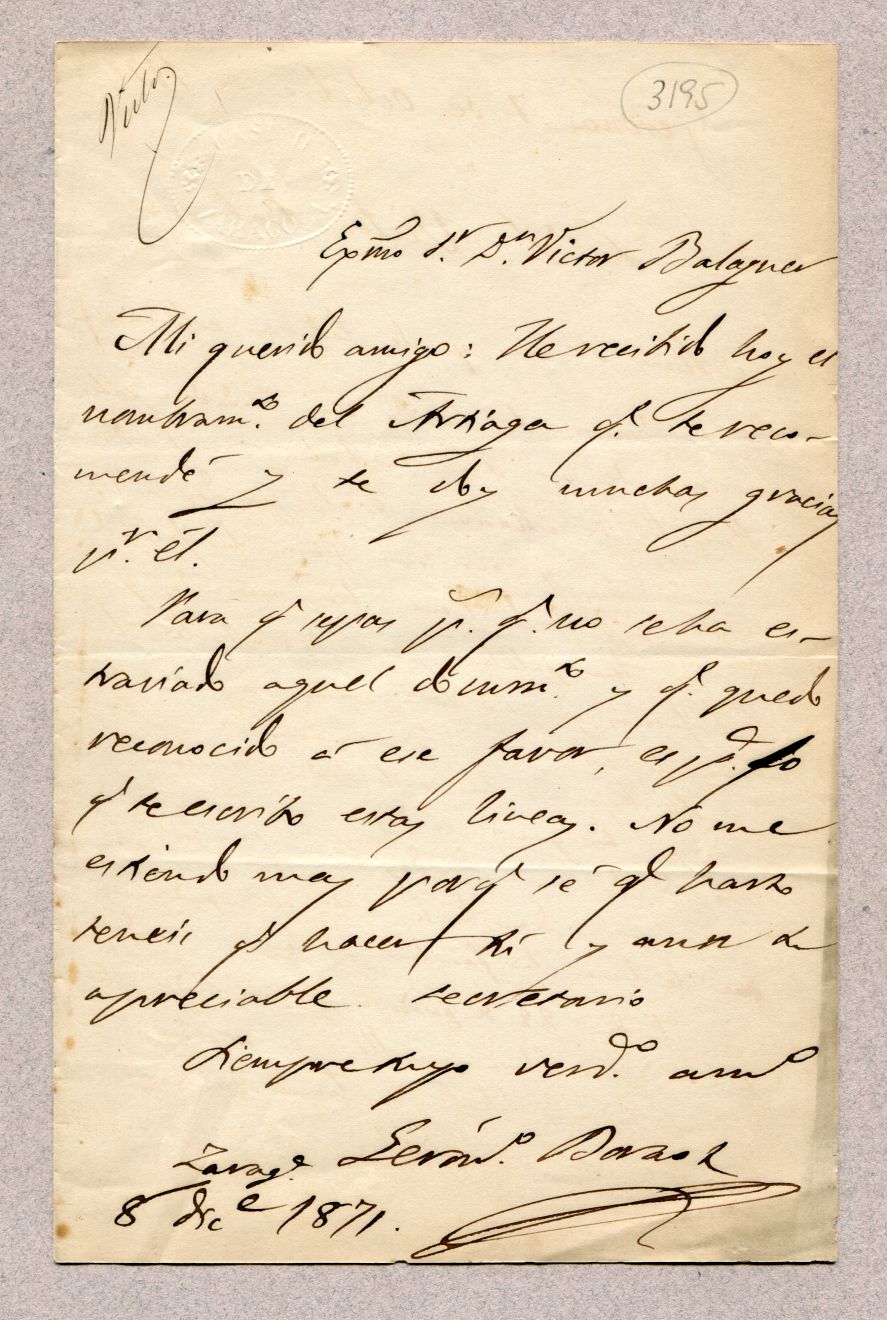 Visto
3195
Exmo Sr. Dn. Victor Balaguer
Mi querido amigo: He recibido hoy el
nombramto. del Artiaga qe. te reco-
mendé y te doy muchas gracias
pr. él.
Para qe sepas pr. qe. no se ha es-
traviado aquel documto. y qe. quedo
reconocido á ese favor, es pr. lo
qe te escribo estas lineas. No me
estiendo mas porqe sé qe harto
teneis qe hacer tú y
apreciable secretario
Siempre tuyo verdo. amo
Zarage. Gerónmo. Borao
8 dice 1871.